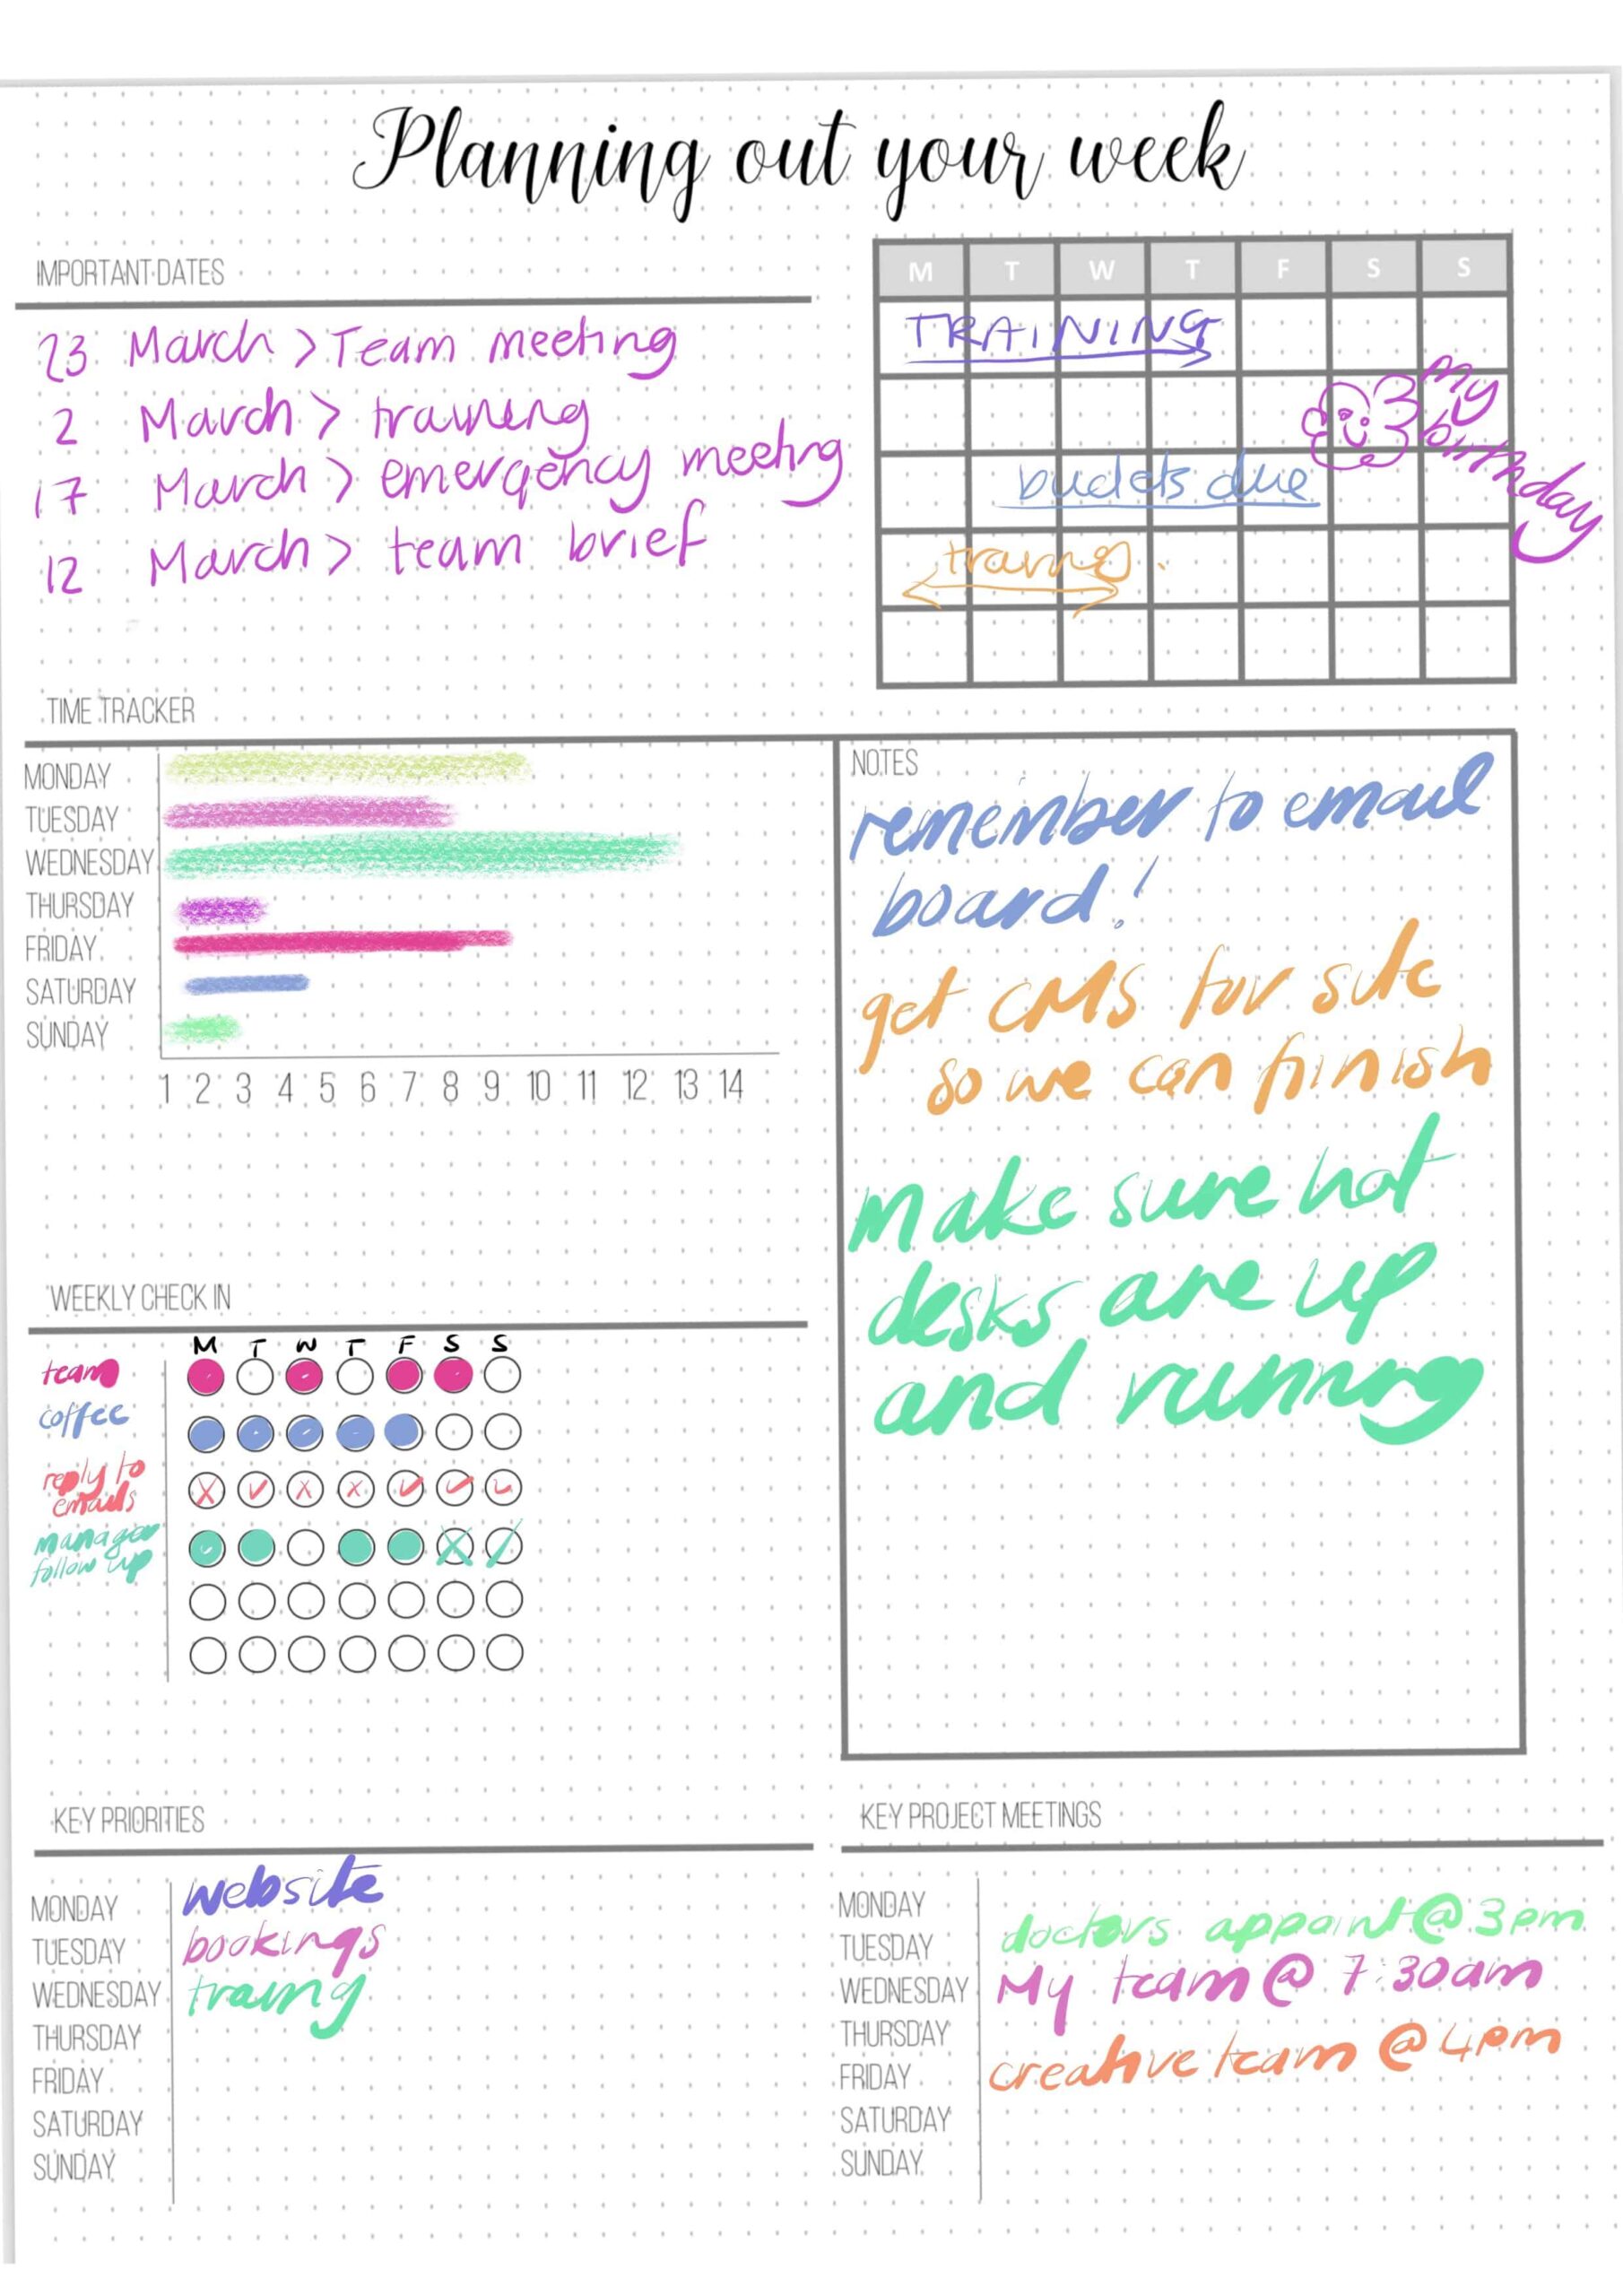 Planning out your week
IMPORTANT DATES
23 March > Team meeting
2 March > training
17 March > emergency meeting
12 March > team brief
M T W T F S S
TRAINING
my birthday
budets due
traing
TIME TRACKER
MONDAY
TUESDAY
WEDNESDAY
THURSDAY
FRIDAY
SATURDAY
SUNDAY
1 2 3 4 5 6 7 8 9 10 11 12 13 14
NOTES
remember to email
board!
get CMS for site
so we can finish
make sure hot
desks are up
and running
WEEKLY CHECK IN
M T W T F S S
team
coffee
reply to
emails
manager
follow up
KEY PRIORITIES
MONDAY website
TUESDAY bookings
WEDNESDAY traing
THURSDAY
FRIDAY
SATURDAY
SUNDAY
KEY PROJECT MEETINGS
MONDAY
TUESDAY doctors appoint @ 3pm
WEDNESDAY My team @ 7:30am
THURSDAY
FRIDAY creative team @ 4pm
SATURDAY
SUNDAY